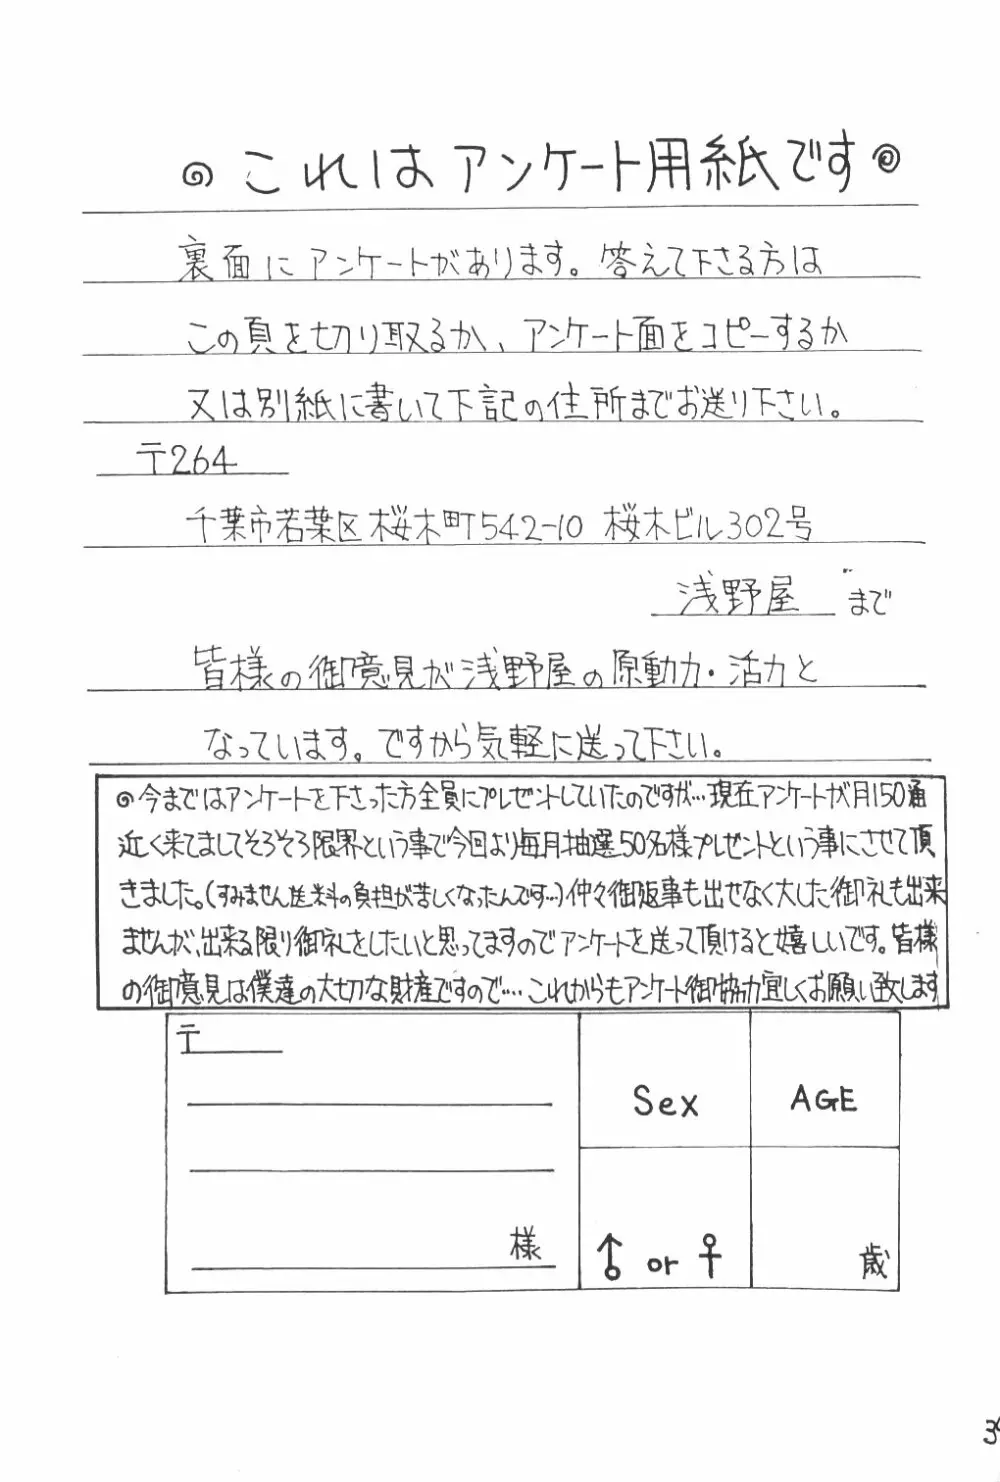 ◎これはアンケート用紙です◎
裏面にアンケートがあります。答えて下さる方は
この頁を切り取るか、アンケート面をコピーするか
又は別紙に書いて下記の住所までお送り下さい。
〒264
千葉市若葉区桜木町542-10 桜木ビル302号
浅野屋 まで
皆様の御意見が浅野屋の原動力・活力と
なっています。ですから気軽に送って下さい。
◎今まではアンケートを下さった方全員にプレゼントしていたのですが…現在アンケートが月150通
近く来てましてそろそろ限界という事で今回より毎月抽選50名様プレゼントという事にさせて頂
きました。(すみません送料の負担が苦しくなったんです…)仲々御返事も出せなく大した御礼も出来
ませんが、出来る限り御礼をしたいと思ってますのでアンケートを送って頂けると嬉しいです。皆様
の御意見は僕達の大切な財産ですので…これからもアンケート御協力宜しくお願い致します
〒
様
Sex
AGE
♂ or ♀
歳